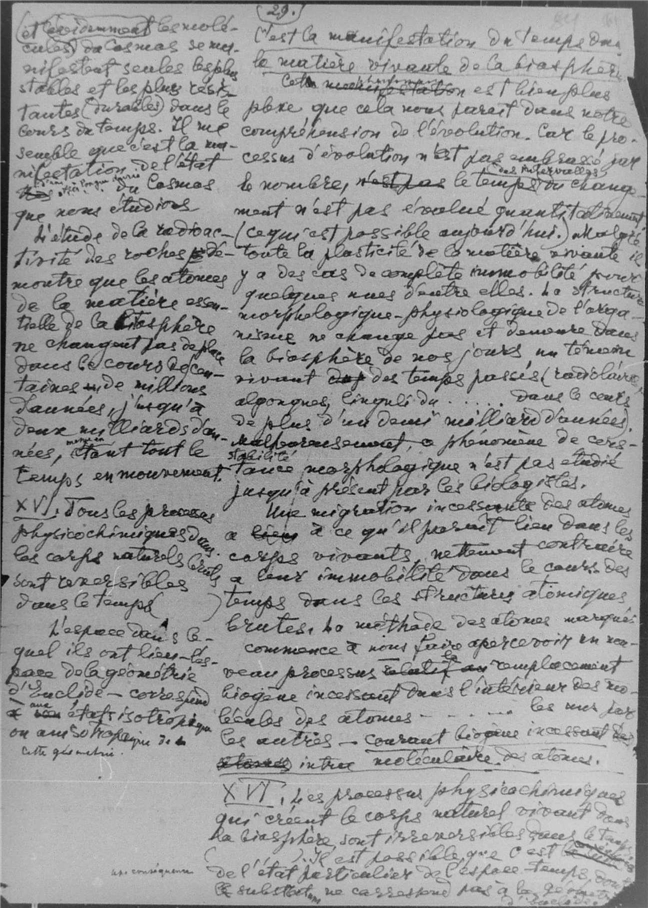 (29.)
(et évidemment les molé-
cules) du Cosmos se ma-
nifestent seules les plus
stables et les plus résis-
tantes (durables) dans le
cours du temps. Il me
semble que c'est la ma-
nifestation de l'état
du Cosmos
que nous étudions
L'étude de la radioac-
tivité des roches dé-
montre que les atomes
de la matière essen-
tielle de la biosphère
ne changent pas de place
dans le cours de cen-
taines de millions
d'années, jusqu'à
deux milliards d'an-
nées, étant tout le
temps en mouvement.
XVI. Tous les processus
physicochimiques dans
les corps naturels bruts
sont reversibles
dans le temps
L'espace dans le-
quel ils ont lieu – l'es-
pace de la géométrie
d'Euclide – correspond
aux états isotropique
ou anisotropique de
cette géometrie.
C'est la manifestation du temps dans
la matière vivante de la biosphère
Cette manifestation est bien plus
plexe que cela nous parait dans notre
compréhension de l'évolution. Car le pro-
cessus d'évolution n'est pas embrassé par
le nombre, n'est pas le temps des intervalles du change-
ment n'est pas évalué quantitativement
(ce qui est possible aujourd'hui). Malgré
toute la plasticité de la matière vivante il
y a des cas de complète immobilité pour
quelques unes d'entre elles. La structure
morphologique-physiologique de l'orga-
nisme ne change pas et demeure dans
la biosphère de nos jours un témoin
vivant des temps passés (radiolaires,
algongues, linguli du ..... dans le cours
de plus d'un demi milliard d'années).
Malheureusement, ce phénomène de cons-
stabilité
tance morphologique n'est pas étudié
jusqu'à présent par les biologistes.
Une migration incessante des atomes
a lieu à ce qu'il parait lieu dans les
corps vivants, nettement contraire
a leur immobilité dans le cours des
temps dans les structures atomiques
brutes. La méthode des atomes marqués
commence à nous faire apercevoir un nou-
veau processus relatif au remplacement
biogène incessant dans l'intérieur des mo-
lécules des atomes ....... les uns par
les autres – courant biogène incessant des
atomes intra moléculaire des atomes.
XVI. Les processus physicochimiques
qui créent le corps naturel vivant dans
la biosphère, sont irreversibles dans le temps
Il est possible, que c'est
une conséquence
de l'état particulier de l'espace-temps, dont
le substratum ne correspond pas a la géometrie
d'Euclide